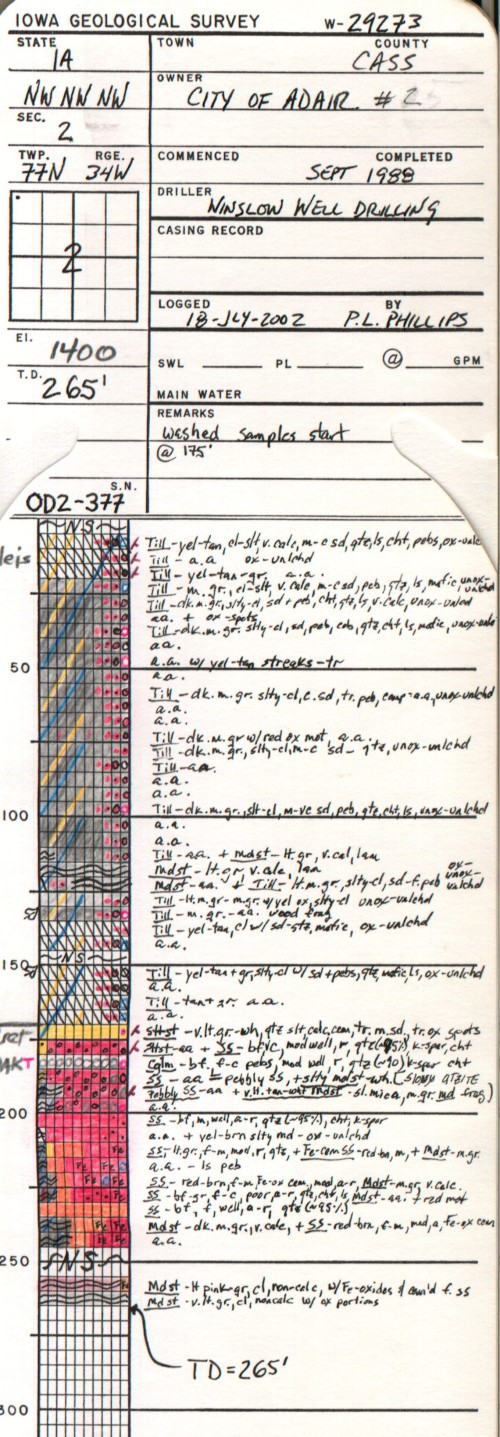 IOWA GEOLOGICAL SURVEY W-29273
STATE TOWN COUNTY
IA CASS
OWNER
NW NW NW CITY OF ADAIR # 2
SEC.
2
TWP. RGE. COMMENCED COMPLETED
77N 34W SEPT 1988
DRILLER
WINSLOW WELL DRILLING
2
CASING RECORD
LOGGED BY
18-JLY-2002 P.L. PHILLIPS
El.
1400
SWL PL @ GPM
T.D.
265'
MAIN WATER
REMARKS
washed samples start
@ 175'
S.N.
OD2-377
NS
Till - yel-tan, cl-slt, v.calc, m-c sd, qtz, ls, cht, pebs, ox-unlc
Till - a.a ox-unlchd
leis
Till - yel-tan-gr. a.a.
Till - m. gr., cl-slt, v. calc, m-c sd, peb, qtz, ls, mafic, unox-
Till - dk. m. gr., slty-cl, sd + peb, cht, qtz, ls v. calc, unox-unlchd
aa. + ox-spots
Till - dk. m. gr. slty-cl, sd, peb, cob, qtz, cht, ls, mafic, unox-unlc
aa.
a.a. w/ yel-tan streaks - tr
50
a.a.
Till - dk. m. gr. slty-cl, c. sd, tr. peb, comp-a.a, unox-unlchd
a.a.
a.a.
Till - dk. m. gr w/ red ox mot, a.a.
Till - dk. m. gr., slty-cl, m-c sd - qtz, unox-unlchd
Till - aa.
a.a.
a.a.
Till - dk. m. gr., slt-cl, m-vc sd, peb, qtz, cht, ls, unox-unlchd
100
a.a.
a.a.
Till - aa. + mdst - lt. gr, v. cal, lam
mdst - lt. gr, v. calc, lam
Mdst - aa. + Till - lt. m. gr, slty-cl, sd-f. peb ox-unox-unlchd
Till - lt. m. gr - m. gr w/ yel ox, slty-cl unox-unlchd
Till - m. gr. - aa. wood frag
Till - yel-tan, cl w/ sd-sts, mafic, ox-unlchd
a.a.
NS
150
Till - yel-tan + gr, slty-cl w/ sd + pebs, qtz, mafic, ls, ox-unlchd
a.a.
Till - tan + gr. a.a.
a.a.
ret
sltst - v. lt. gr - wh, qtz slt, calc, cem, tr. m. sd, tr. ox spots
Sltst - aa + SS - bf, vc, mod well, r, qtz (~95%) k-spar, cht
AKT
Cglm - bf. f-c pebs, mod well r, qtz (~90) k-spar cht
SS - aa = pebbly SS, + slty mdst - wh.
Pebbly SS - aa + v. lt. tan-wht mdst - sl. mica, m. gr. md frag.)
200
a.a.
SS - bf, m, well, a-r, qtz (~95%), cht, k-spar
a.a. + yel-brn slty md - ox-unlchd
SS, lt. gr, f-m, mod, r, qtz, + Fe-cem SS - red-bn, m, + Mdst - m. gr.
a.a. - ls peb
Fe Fe Fe Fe
SS - red-brn, f-m, Fe-ox cem, mod, a-r, Mdst - m. gr, v. calc.
SS - bf-gr, f-c, poor, a-r, qtz, cht, ls, Mdst - aa. + red mot
SS - bf, f, well, a-r, qtz (~95%)
Fe Fe Fe Fe
Mdst - dk. m. gr., v. calc, + SS - red-brn, f-m, mod, a, Fe-ox cem
a.a.
250
NS
Mdst - lt pink-gr, cl, non-calc, w/ Fe-oxides & cem'd f. ss
Mdst - v. lt. gr, cl, noncalc w/ ox portions
Fe
TD=265'
300